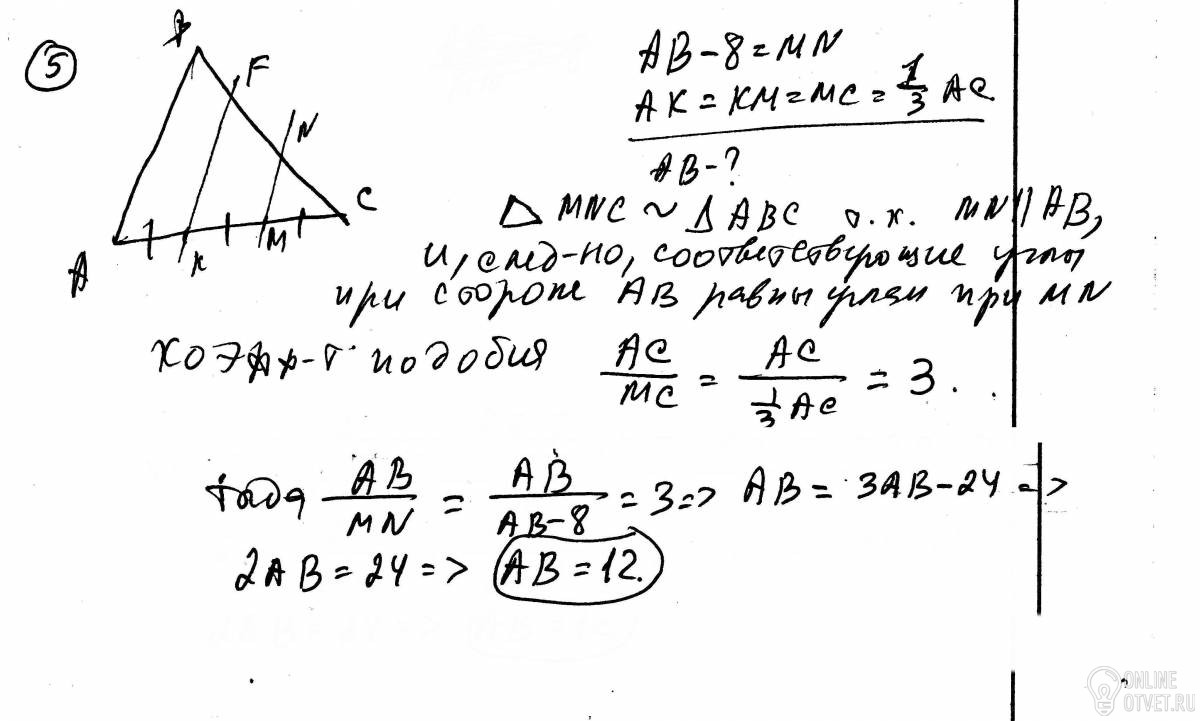 5
B
F
N
C
A
K
M
AB - 8 = MN
AK = KM = MC = 1/3 AC
AB - ?
△ MNC ~ △ ABC т.к. MN || AB,
и, след-но, соответствующие углы
при стороне AB равны углам при MN
коэфф-т подобия AC/MC = AC/(1/3 AC) = 3.
тогда AB/MN = AB/(AB-8) = 3 => AB = 3AB - 24 =>
2AB = 24 => AB = 12.
ONLINE
OTVET.RU